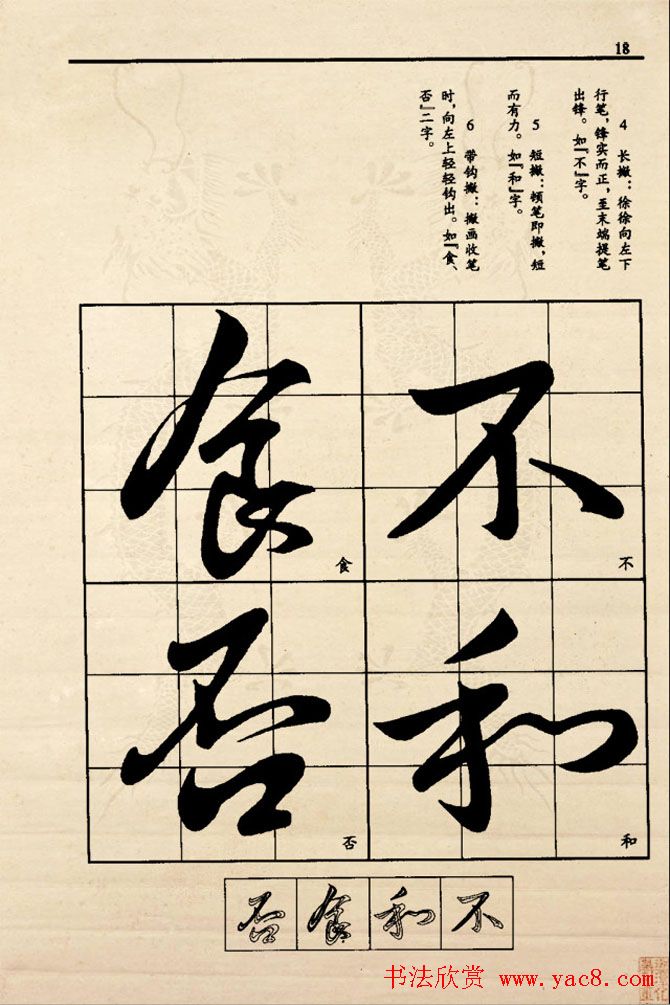 18
4 长撇：徐徐向左下
行笔，锋实而正，至末端提笔
出锋。如『不』字。
5 短撇：顿笔即撇，短
而有力。如『和』字。
6 带钩撇：撇画收笔
时，向左上轻轻钩出。如『食、
否』二字。
不
不
和
和
食
食
否
否
不和食否
书法欣赏 www.yac8.com